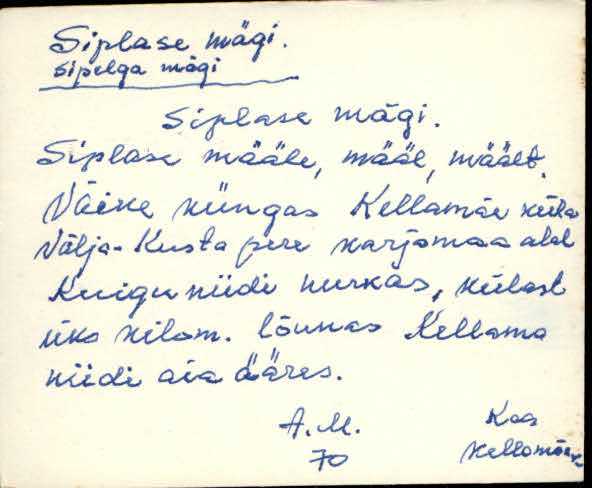 Siplase mägi.
Sipelga mägi
Siplase mägi.
Siplase määle, määl, mäält.
Väike küngas Kellamäe küla
Välja-Kusta pere karjamaa alal
Kuigu niidi nurkas, külast
üks kilom. lõunas Kellama
niidi aia ääres.
A. M. Kaa
70 Kellamäe